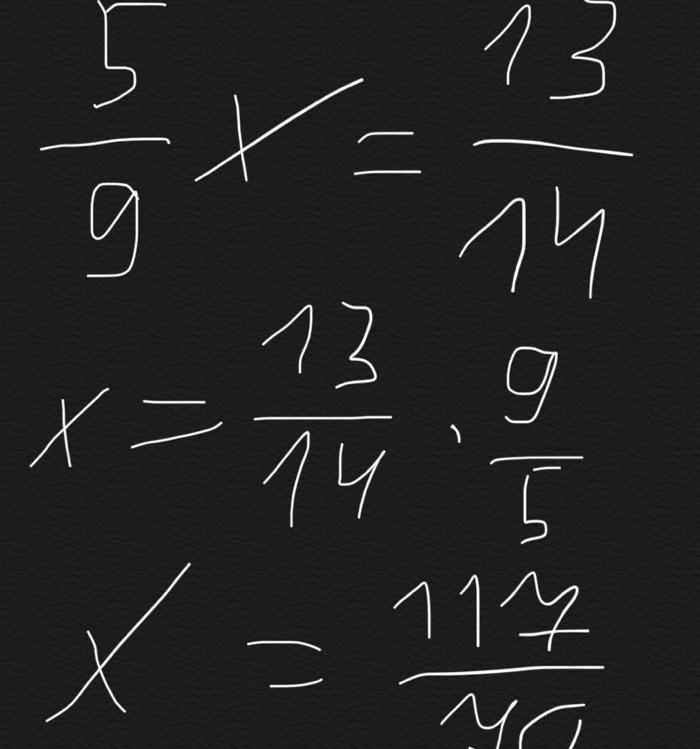 5/9 x = 13/14
x = 13/14 · 9/5
x = 117/70